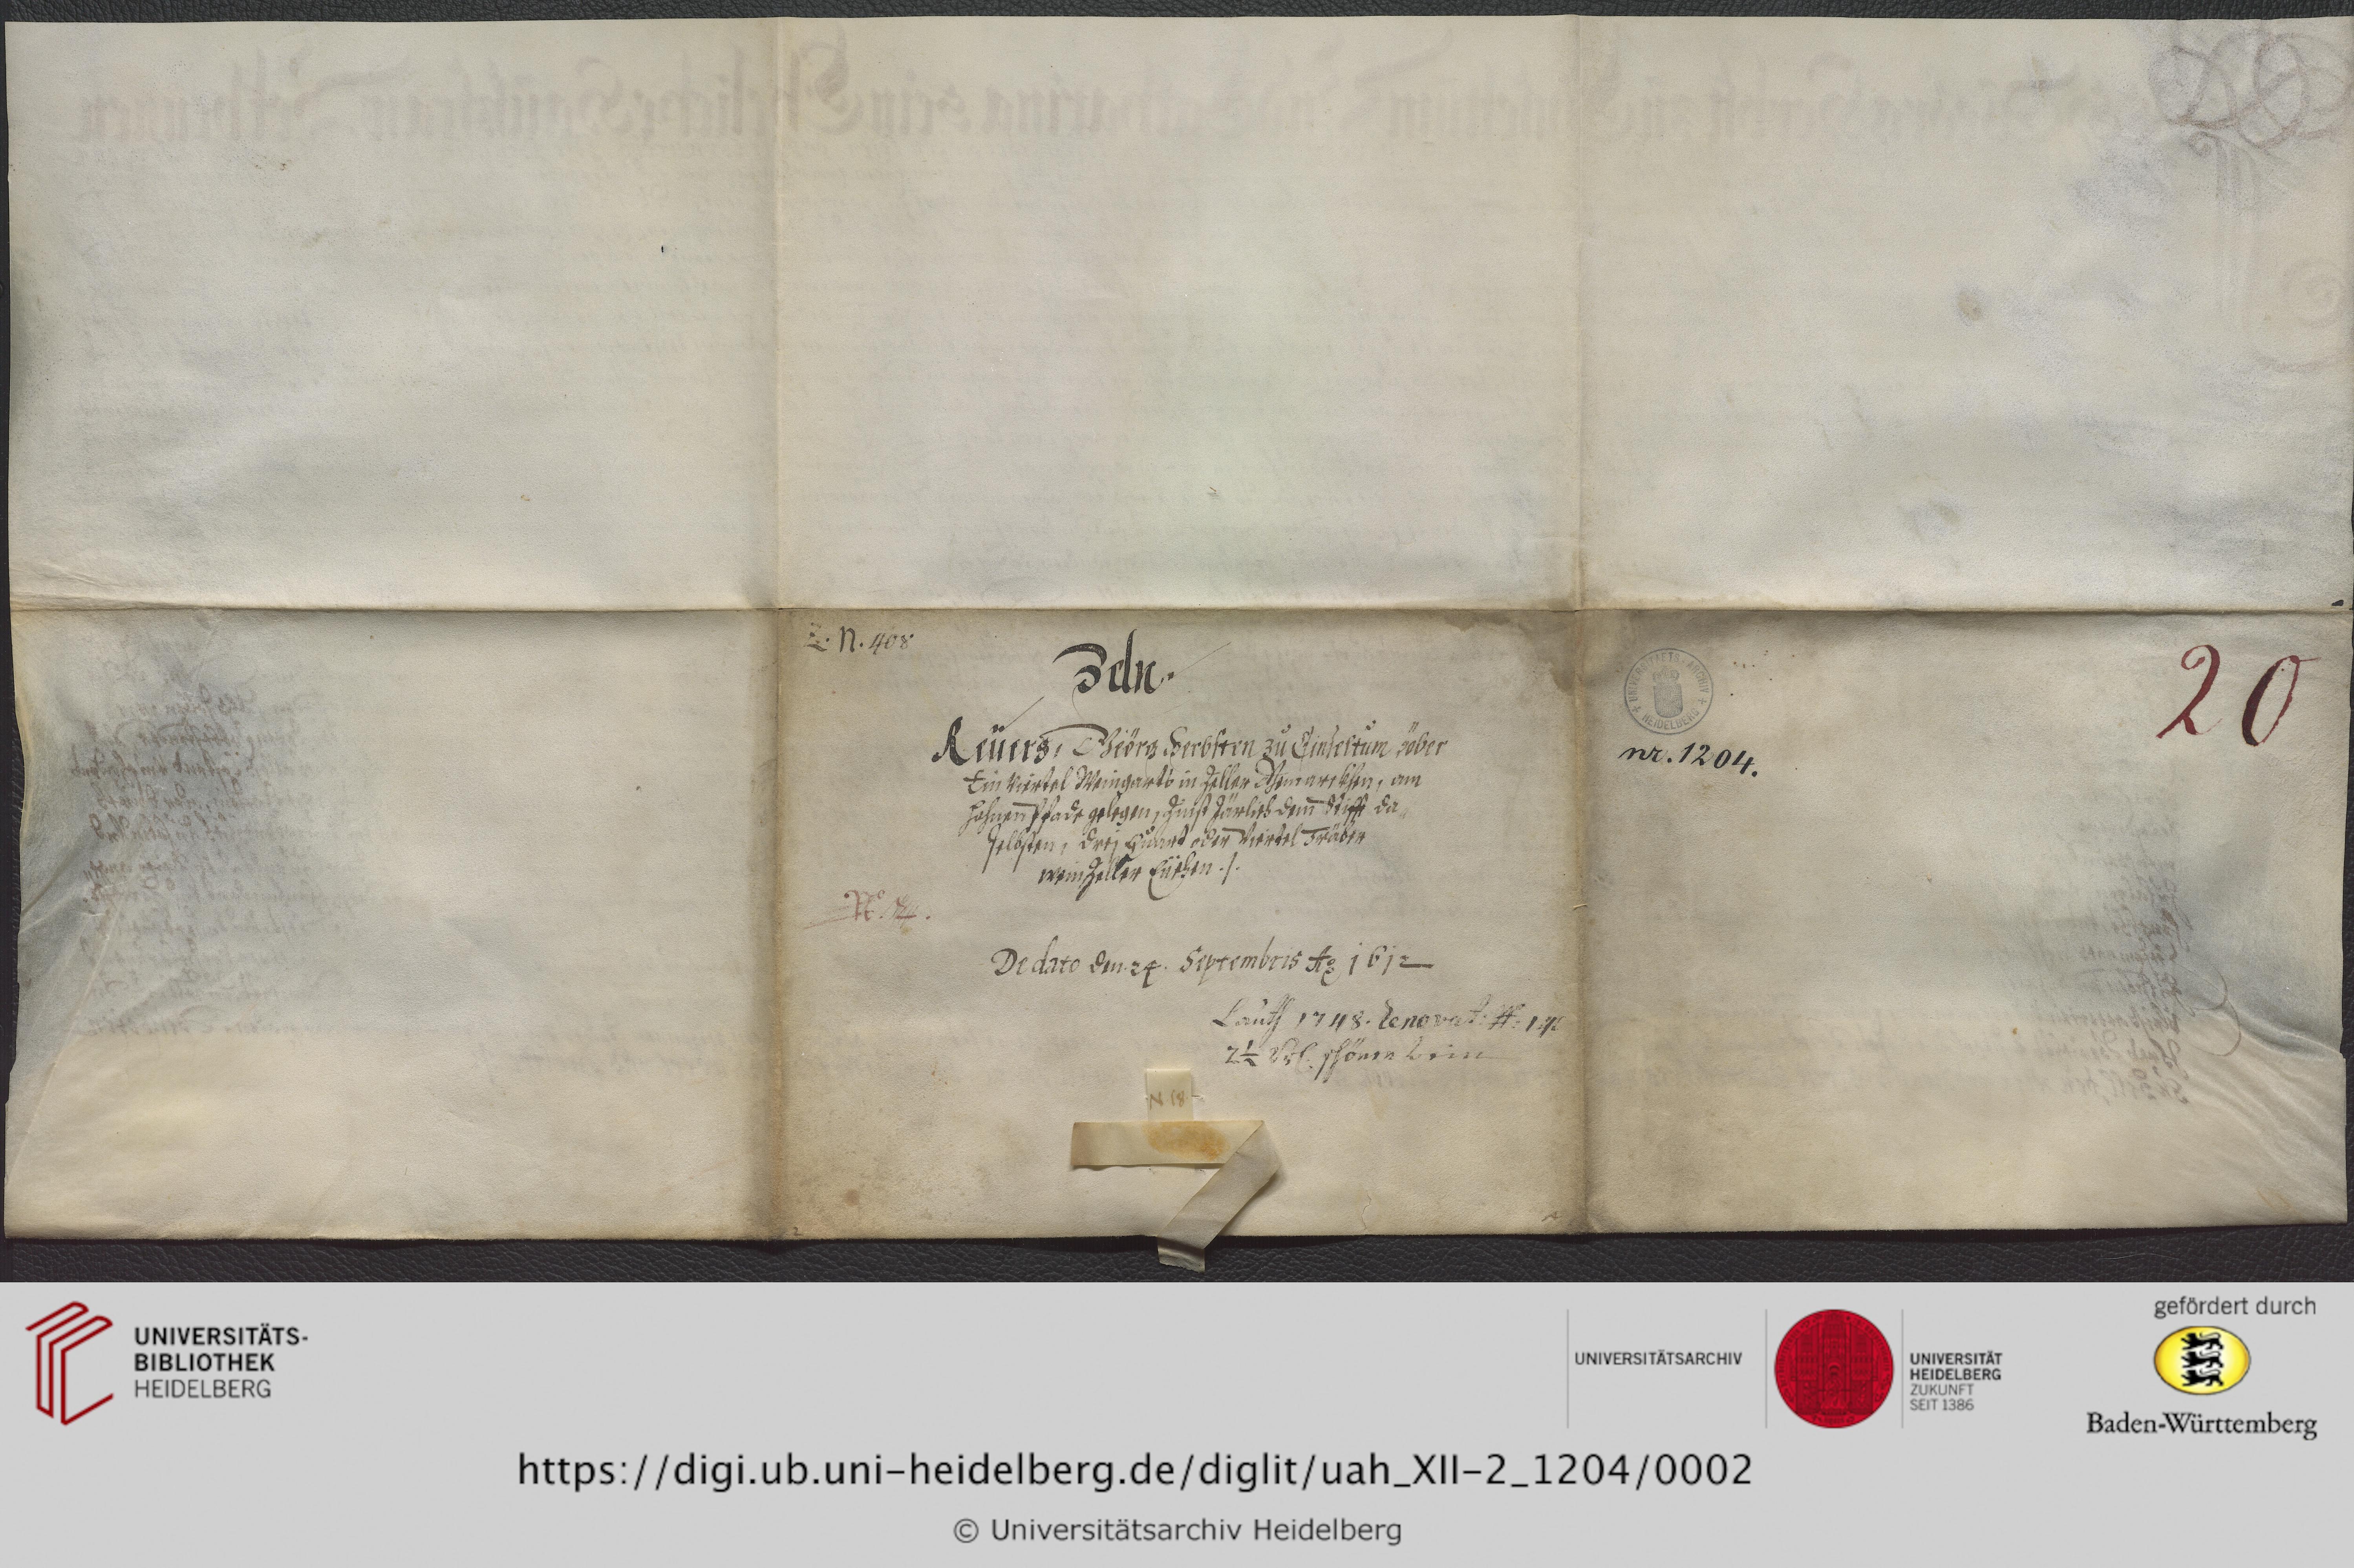 Z. N. 408
Zeln.
Reüers, Geörg Herbsten zu Einseltum über
Ein viertel Weingarts in Zeller Gemarckhen, am
Hohnen Pfade gelegen, Zinst Järlich dem Stifft da„
selbsten, drej Quart oder Viertel Trüber
wein Zeller Eüchen ./.
De dato den 24. Septembris Ao 1612
Lauth 1748. Renovat:
2½ Vrl.
N 18
UNIVERSITÄTS-ARCHIV HEIDELBERG
nr. 1204.
20
UNIVERSITÄTS-
BIBLIOTHEK
HEIDELBERG
UNIVERSITÄTSARCHIV
UNIVERSITÄT
HEIDELBERG
ZUKUNFT
SEIT 1386
gefördert durch
Baden-Württemberg
https://digi.ub.uni-heidelberg.de/diglit/uah_XII-2_1204/0002
© Universitätsarchiv Heidelberg